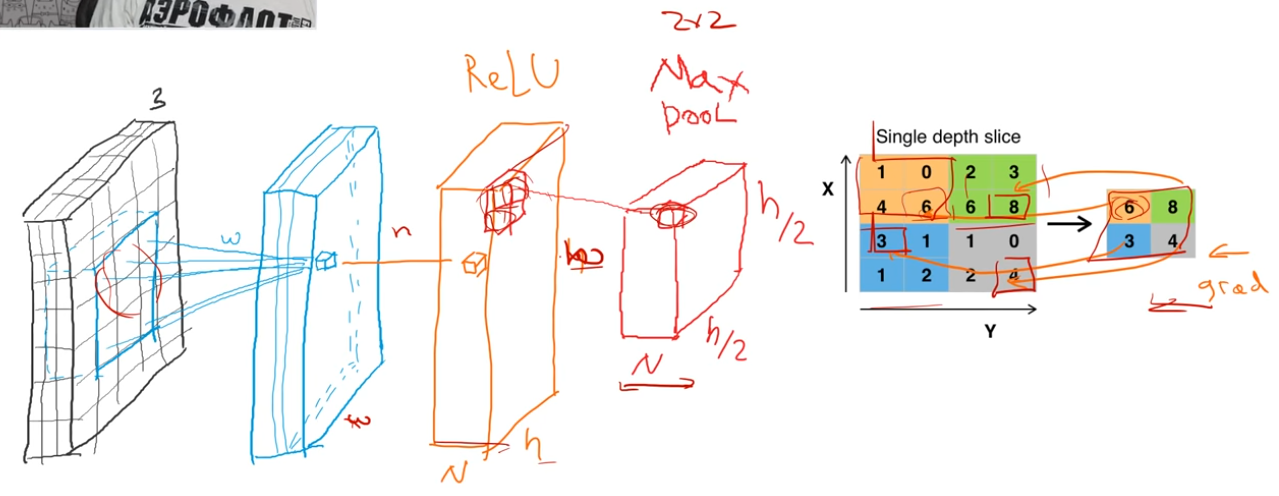 АЭРОФЛОТ
2x2
ReLU
Max
pool
3
w
n
h/2
h/2
N
h
N
Single depth slice
X
1 0 2 3
4 6 6 8
3 1 1 0
1 2 2 4
Y
6 8
3 4
grad